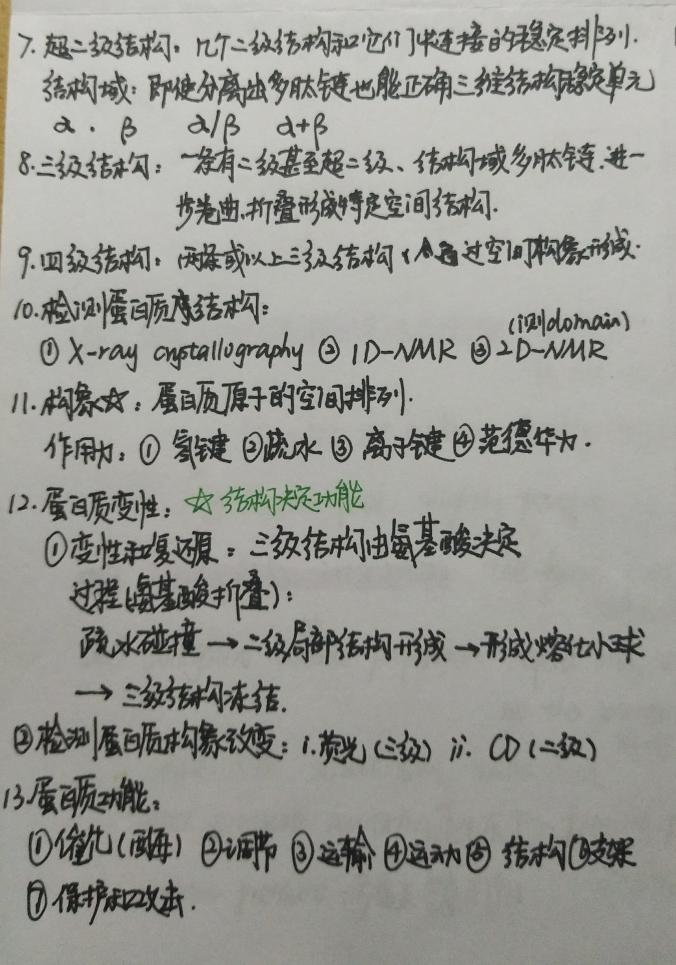 7. 超二级结构：几个二级结构和它们中连接的稳定排列.
结构域：即使分离出多肽链也能正确三维结构稳定单元
α . β α/β α+β
8.三级结构：一条有二级甚至超二级、结构域多肽链.进一
步卷曲.折叠形成特定空间结构.
9.四级结构：两条或以上三级结构 通过空间构象形成.
10.检测蛋白质序结构：
(测domain)
① X-ray crystallography ② 1D-NMR ③ 2D-NMR
11.构象☆：蛋白质原子的空间排列.
作用力：① 氢键 ②疏水 ③ 离子键 ④范德华力.
12.蛋白质变性：☆ 结构决定功能
①变性和复还原：三级结构由氨基酸决定
过程(氨基酸折叠)：
疏水碰撞 → 二级局部结构形成 → 形成熔化小球
→ 三级结构冻结.
②检测蛋白质构象改变：i.荧光(三级) ii. CD(二级)
13.蛋白质功能：
①催化(酶) ②调节 ③运输 ④运动 ⑤ 结构 ⑥支架
⑦保护和攻击.